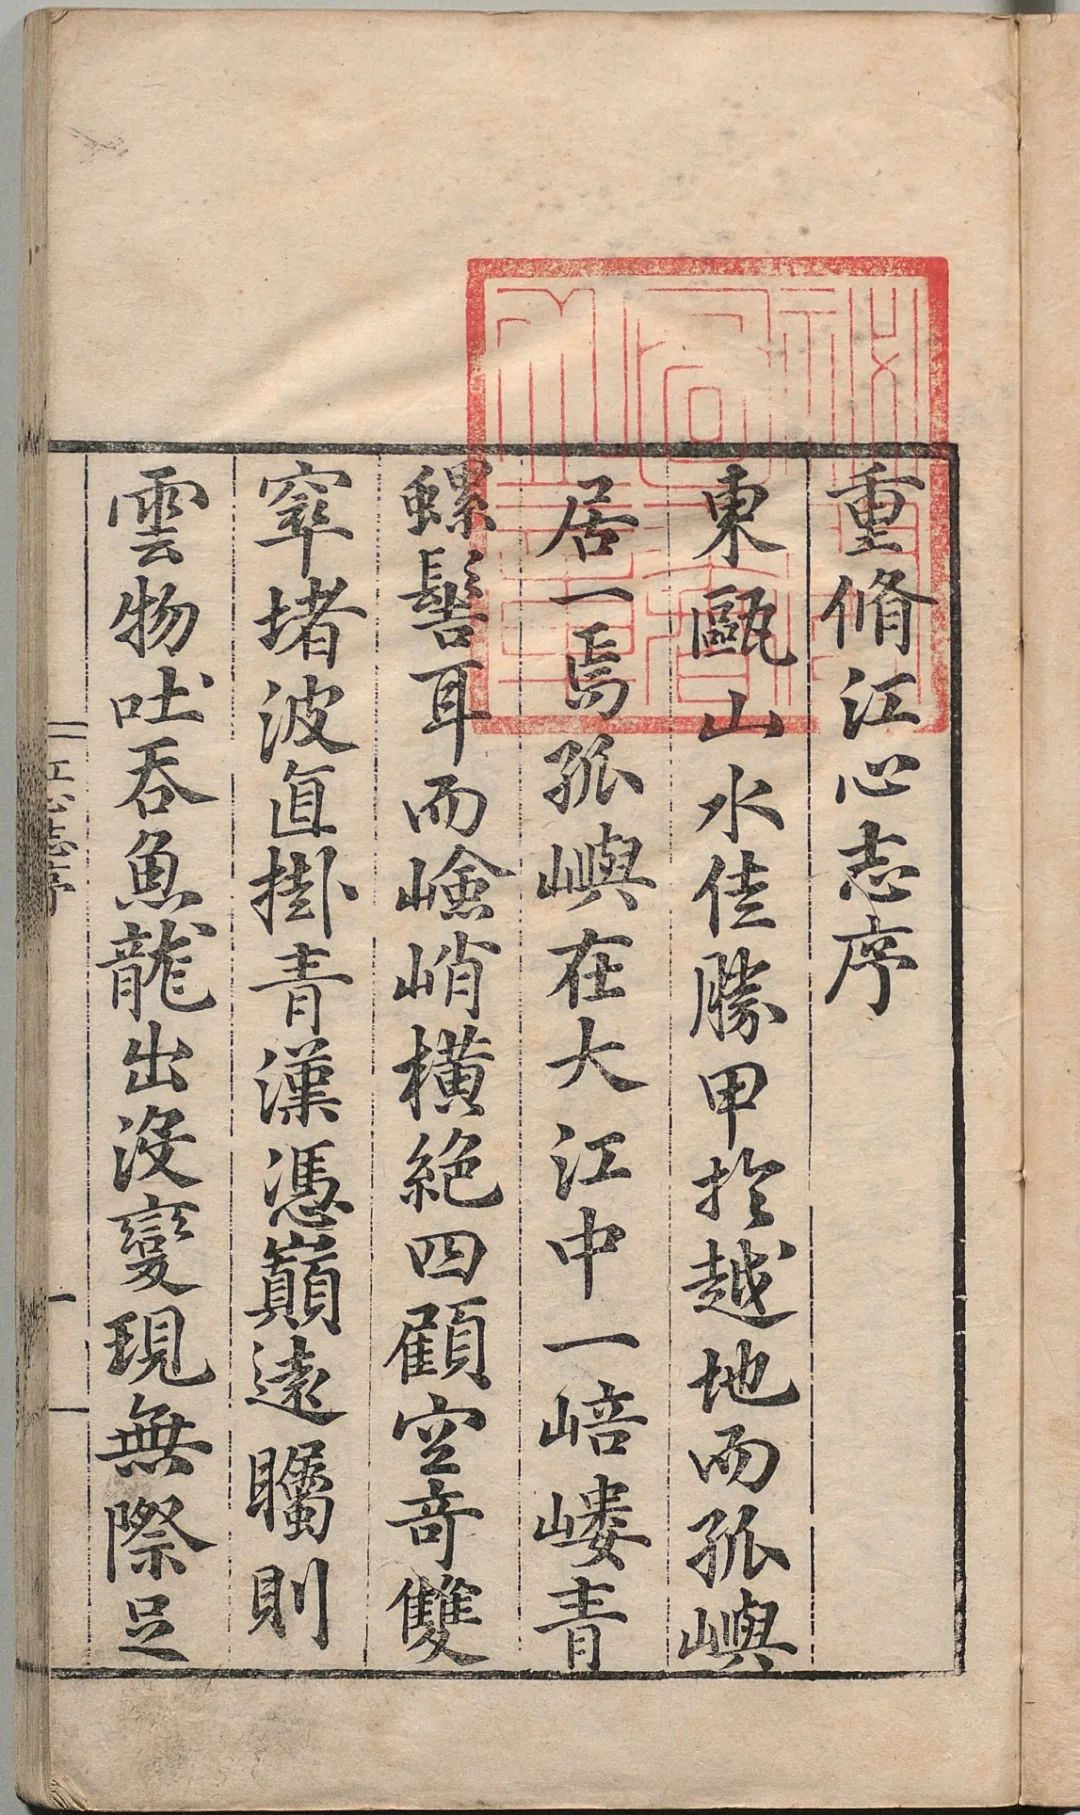 重脩江心志序
東甌山水佳勝甲扵越地而孤嶼
居一焉孤嶼在大江中一㟝嶁青
螺髻耳而嶮峭橫絕四顧空竒雙
窣堵波直掛青漢憑巔遠矚則
雲物吐吞魚龍出沒變現無際足
江心志序
一